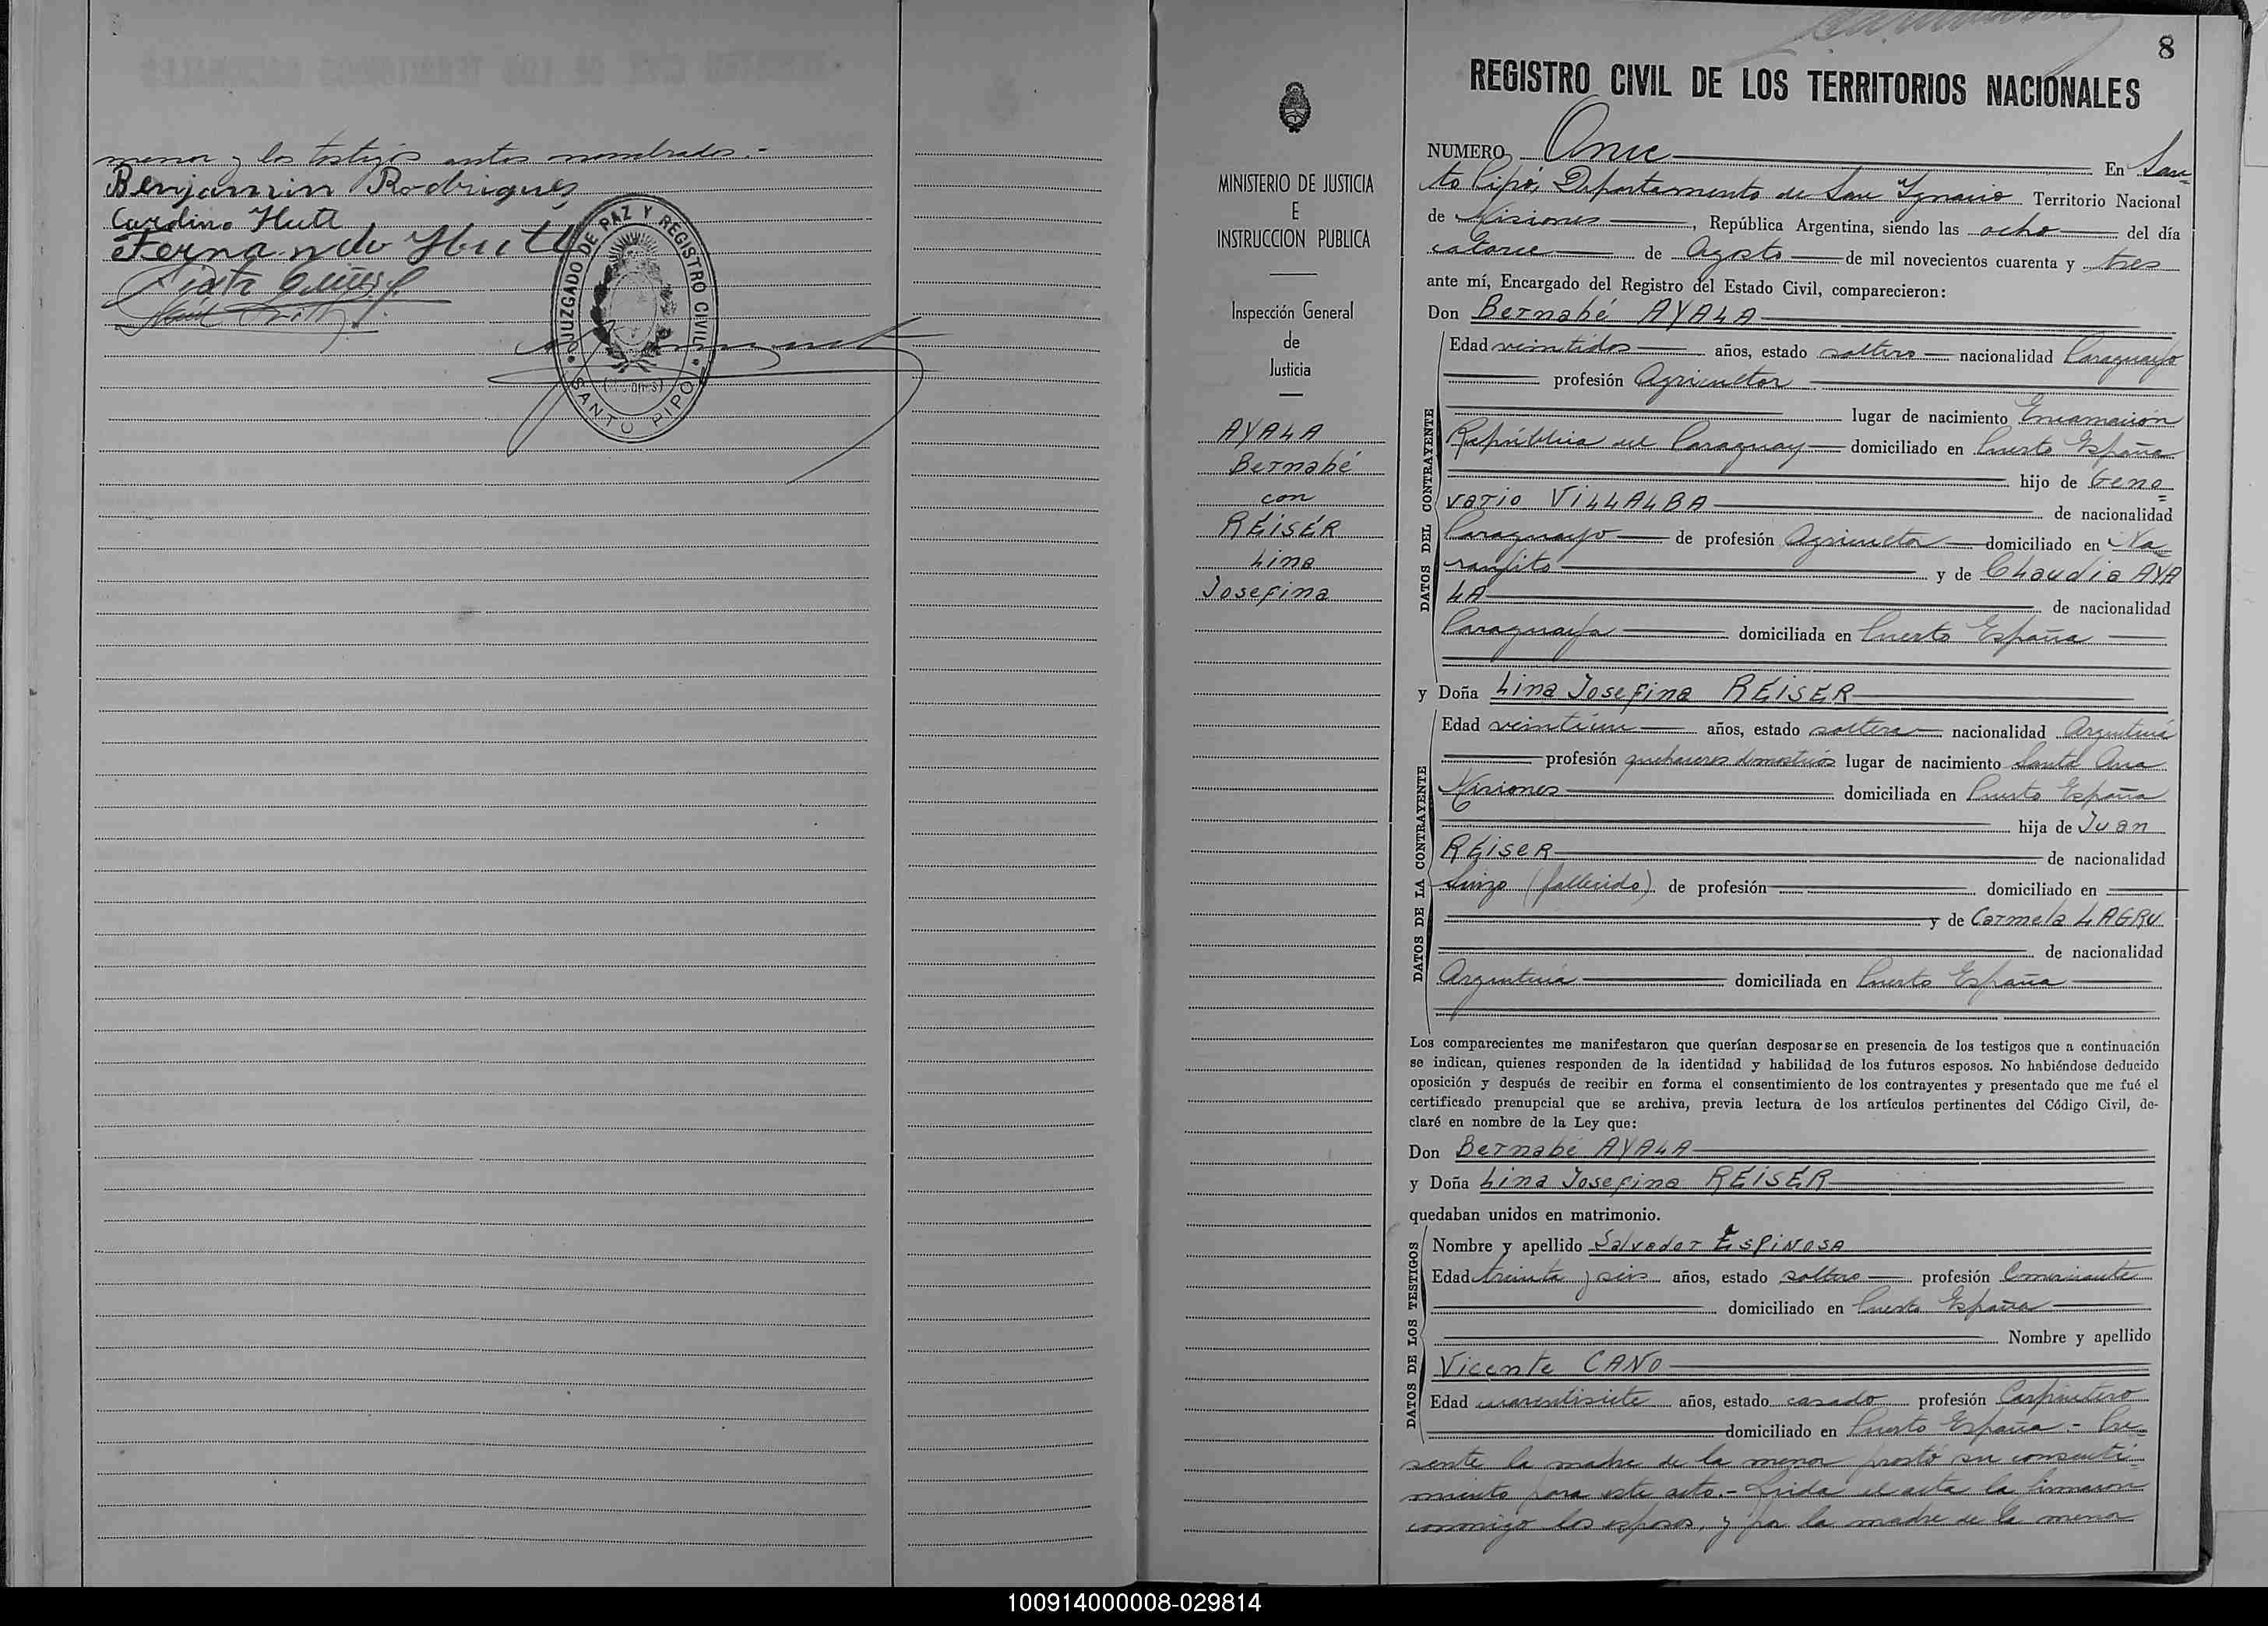 menor y los testigos antes nombrados.-
Benjamin Rodrigues
Cardino Hutt
Fernando Hutt
JUZGADO DE PAZ Y REGISTRO CIVIL
SANTO PIPO
8
REGISTRO CIVIL DE LOS TERRITORIOS NACIONALES
MINISTERIO DE JUSTICIA
E
INSTRUCCION PUBLICA
Inspección General
de
Justicia
AYALA
Bernabé
con
REISER
Lina
Josefina
NUMERO Once En San
to Pipó, Departamento de San Ignacio Territorio Nacional
de Misiones, República Argentina, siendo las ocho del día
catorce de Agosto de mil novecientos cuarenta y tres
ante mí, Encargado del Registro del Estado Civil, comparecieron:
Don Bernabé AYALA
DATOS DEL CONTRAYENTE
Edad veintidos años, estado soltero nacionalidad Paraguayo
profesión Agricultor
lugar de nacimiento Encarnación
República del Paraguay domiciliado en Puerto España
hijo de Geno=
vario VILLALBA de nacionalidad
Paraguayo de profesión Agricultor domiciliado en Na
ranjito y de Claudia AYA
LA de nacionalidad
Paraguaya domiciliada en Puerto España
y Doña Lina Josefina REISER
DATOS DE LA CONTRAYENTE
Edad veintiún años, estado soltera nacionalidad Argentina
profesión quehaceres domésticos lugar de nacimiento Santa Ana
Misiones domiciliada en Puerto España
hija de Juan
REISER de nacionalidad
Suizo (fallecido) de profesión domiciliado en
y de Carmela LAGRU
de nacionalidad
Argentina domiciliada en Puerto España
Los comparecientes me manifestaron que querían desposarse en presencia de los testigos que a continuación
se indican, quienes responden de la identidad y habilidad de los futuros esposos. No habiéndose deducido
oposición y después de recibir en forma el consentimiento de los contrayentes y presentado que me fué el
certificado prenupcial que se archiva, previa lectura de los artículos pertinentes del Código Civil, de-
claré en nombre de la Ley que:
Don Bernabé AYALA
y Doña Lina Josefina REISER
quedaban unidos en matrimonio.
DATOS DE LOS TESTIGOS
Nombre y apellido Salvador ESPINOSA
Edad treinta y seis años, estado soltero profesión Comerciante
domiciliado en Puerto España
Nombre y apellido
Vicente CANO
Edad cuarentisiete años, estado casado profesión Carpintero
domiciliado en Puerto España - Pre
sente la madre de la menor prestó su consenti-
miento para este acto.- Leida el acta la firmaron
conmigo los esposos, y por la madre de la menor
100914000008-029814